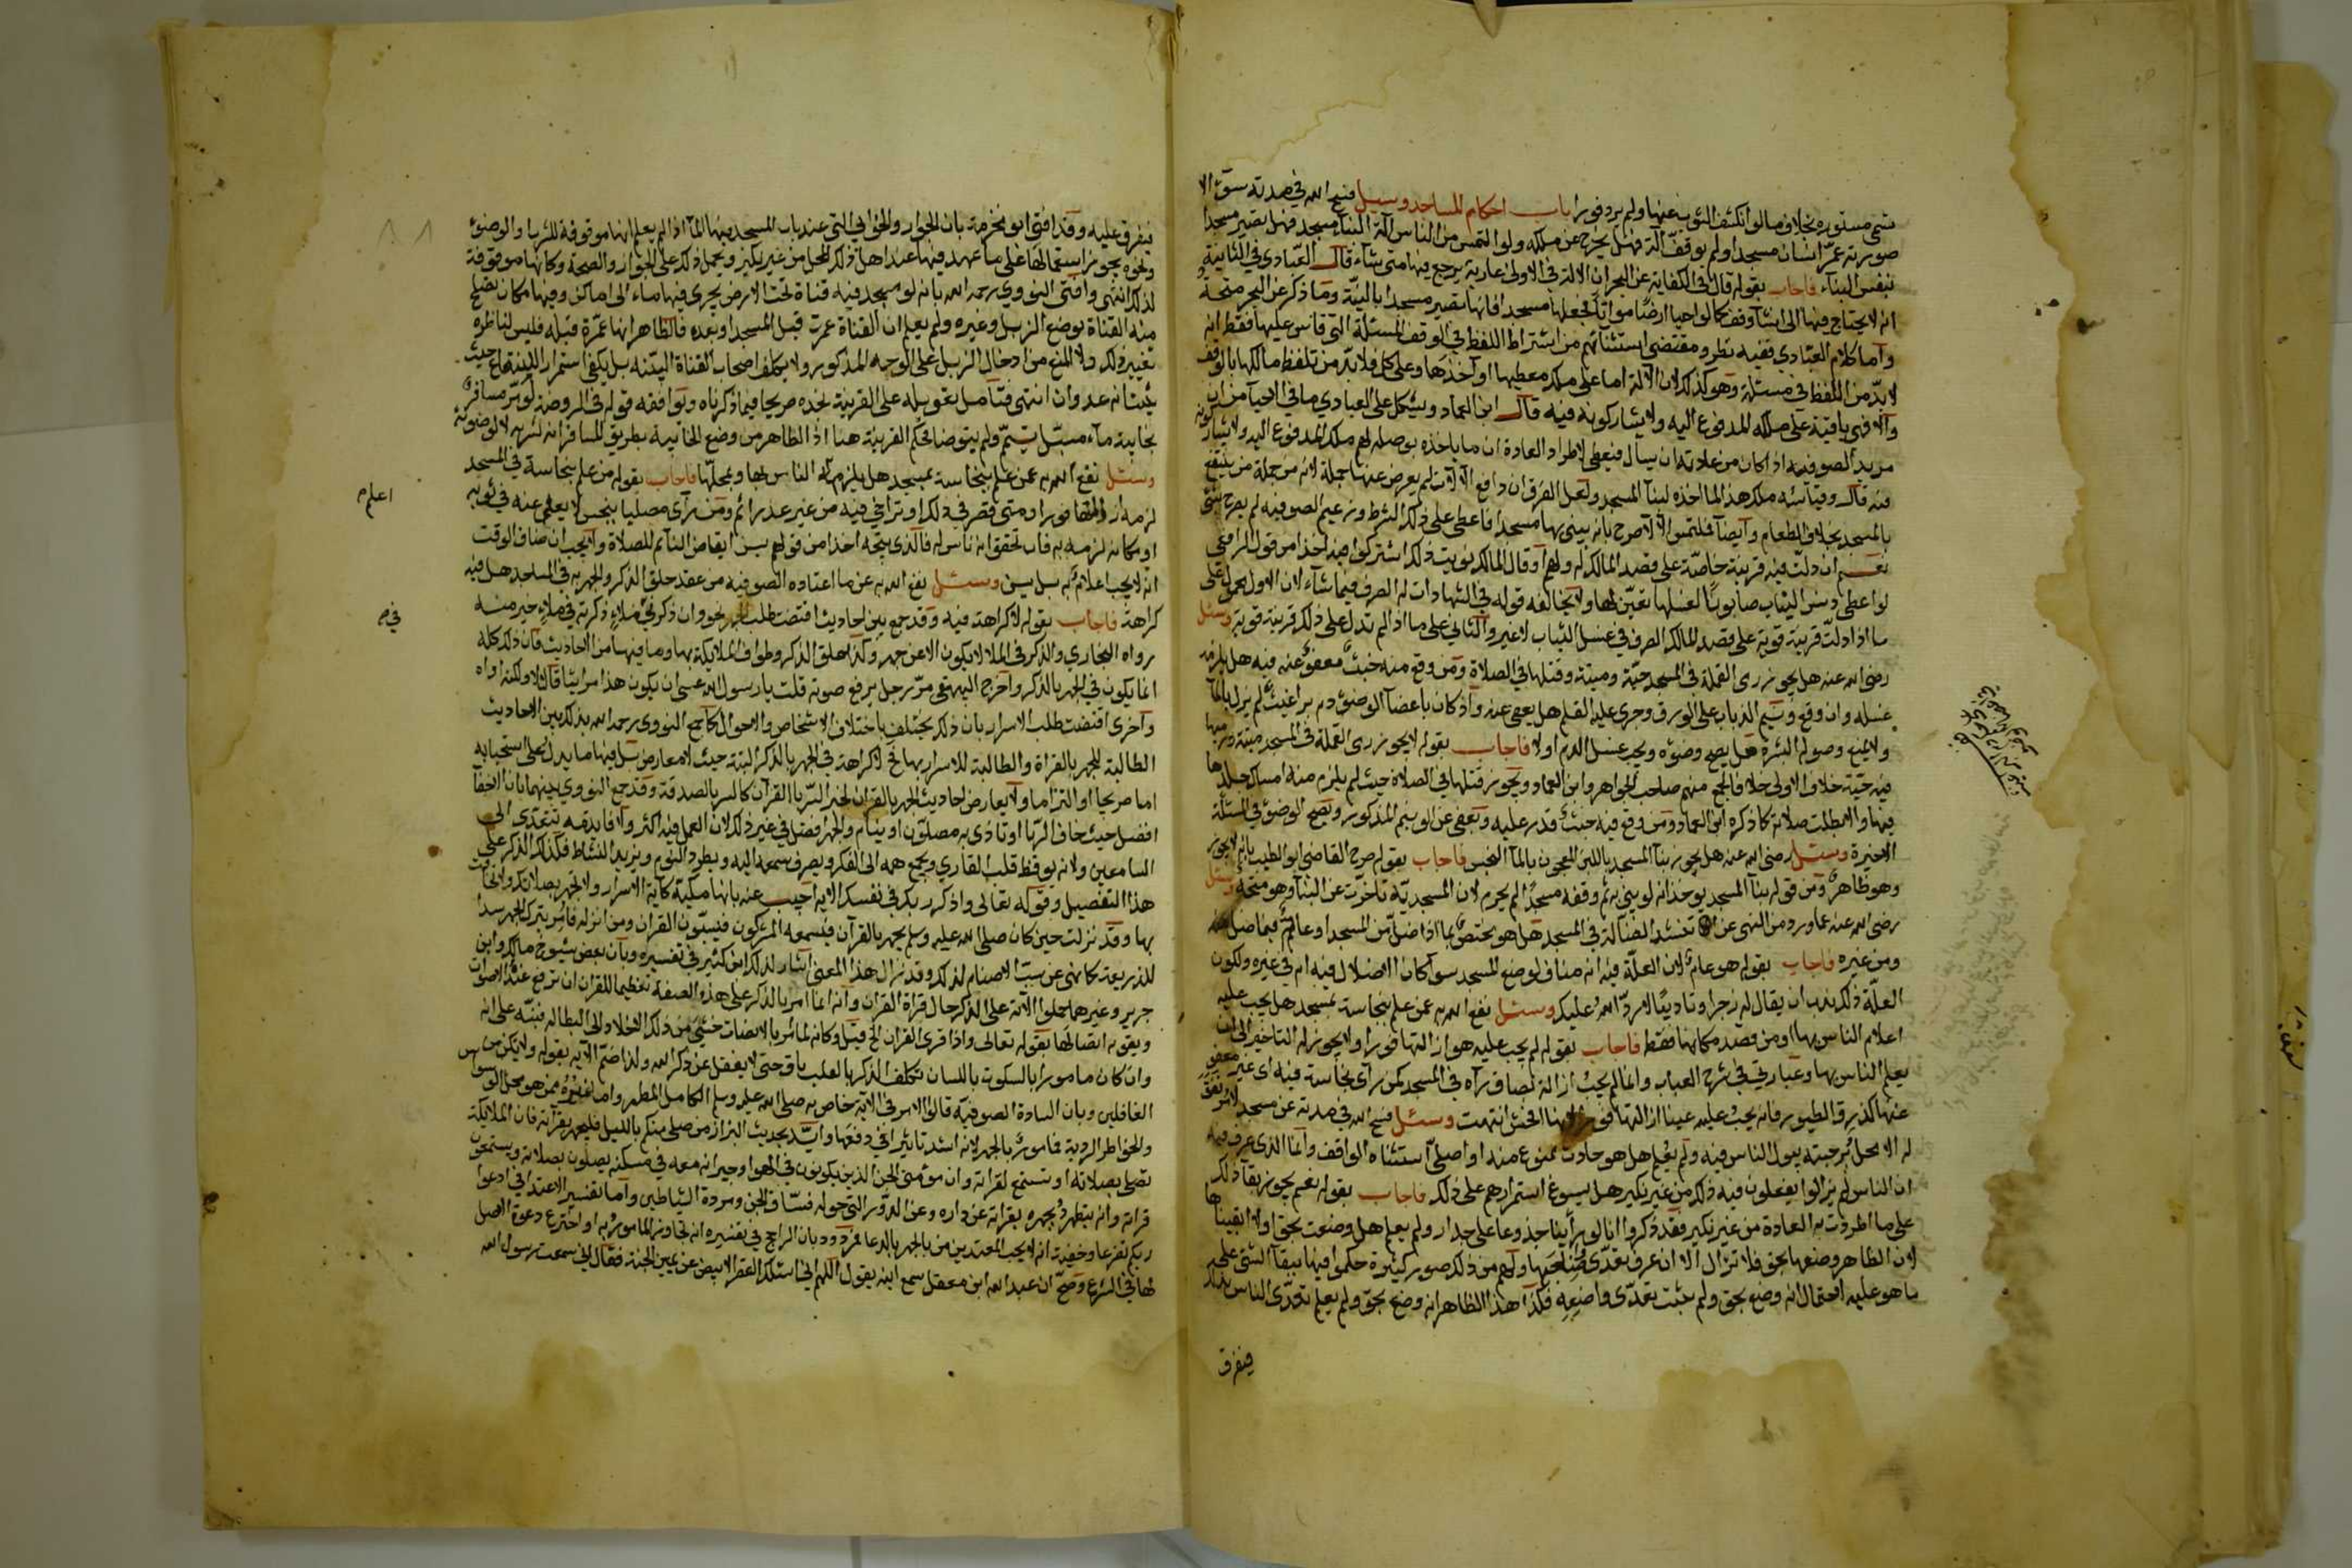 تسمى مستوره بخلاف ما لو انكشف الثوب عنها ولم يرد فورا باب احكام المساجد وسيل فسح الله في مدته سؤالا
صورته عمّر انسان مسجدا ولم يوقف آلته فهل يخرج عن ملكه ولو التمس من الناس آلة لبناء مسجد فهل يصير مسجدا
بنفس البناء فاجاب بقوله قال في الكفاية عن البحر ان الالة في الاولى عارية يرجع فيها متى شاء قال العبّادى في الثانية
انه لا يحتاج فيها الى انشا وقف كما لو احيا ارضا مواتا فجعلها مسجدا فانها تصير مسجدا بالنيّة وما ذكر عن البحر متجه
وأما كلام العبّادى ففيه نظر ومقتضى استثنائهم من اشتراط اللفظ في الوقف المسئلة التى قاس عليها فقط انه
لا بدّ من اللفظ في مسئلته وهو كذلك لان الآلة اما على ملك معطيها او آخذها وعلى كل فلا بدّ من تلفظ مالكها بالوقف
والا فهى باقية على ملك المدفوع اليه ولا يشاركونه فيه قال ابن العماد ويشكل على العبادي ما في الاحيا من ان
مريد الصوفيه اذا كان من عادته ان يسال فيعطى لاطراد العادة ان ما ياخذه يوصله لهم ملك المدفوع اليه ولا يشاركونه
فيه قال وقياسه ملك هذا لما اخذه لبنآ المسجد ولعل الفرق ان دافع الآلات لم يعرض عنها جملة لانه من جملة من ينتفع
بالمسجد بخلاف الطعام وأيضا فملتمس الآلآ صرح بانه يبنى بها مسجدا فاعطى على ذلك الشرط وزعيم الصوفيه لم يصرح بشى
نعم ان دلت فيه قرينة خاصّة على قصد المالك له ولهم او قال المالك نويت ذلك اشتركوا فيه اخذا من قول الرافعى
لو اعطى دنس الثياب صابونًا لغسلها تعيّن لها ولا يخالفه قوله في الشهادات له الصرف فيما شاء لان الاول محمول على
ما اذا دلّت قرينة قوية على قصد المالك الصرف في غسل الثياب لا غير والثانى على ما اذا لم تدل على ذلك قرينة قويه وسئل
رضى الله عنه هل يجوز رمى القملة في المسجد حيّة وميتة وقتلها في الصلاة ومن وقع منه خبث معفوّ عنه فيه هل يلزمه
غسله وان وقع ونيم الذباب على الورق وجرى عليه القلم هل يعفى عنه واذا كان باعضآ الوضوء دم براغيث لم يزل بالمآ
ولا يمنع وصوله البشرة هل يصح وضوءه ويجب غسل الدم اولا فاجاب بقوله لا يجوز رمى القملة في المسجد ميتة ورميها
فيه حيّة خلاف الاولى خلافا لجمع منهم صاحب الجواهر وابن العماد ويجوز قتلها في الصلاة حيث لم يلزم منه امساك جلدها
فيها والا بطلت صلاته كما ذكره ابن العماد ومن وقع فيه خبث قدر عليه ويعفى عن الونيم المذكور ويصح الوضوء في المسئلة
الاخيرة وسئل رضى الله عنه هل يجوز بنآ المسجد باللبن المعجون بالمآ النجس فاجاب بقوله صرح القاضى ابو الطيب بانه لا يجوز
وهو ظاهر ومن قوله بنآ المسجد يوخذ انه لو بنى به ثم وقفه مسجدًا لم يحرم لان المسجديّة تاخرت عن البنآ وهو متجه وسئل
رضى الله عنه عما ورد من النهى عن تنشد الضالة في المسجد هل هو يختص بما اذا ضل من المسجد او عام فيما ضل منه
ومن غيره فاجاب بقوله هو عام لان العلّة فيه انه مناف لوضع المسجد سوآ كان الاضلال فيه ام في غيره ولكون
العلّة ذلك ندب ان يقال له زجرا وتاديبًا لا ردّ الله عليك وسئل نفع الله به عمن علم بنجاسة بمسجد هل يجب عليه
اعلام الناس بها او من قصد مكانها فقط فاجاب بقوله لم يجب عليه هو ازالتها فورا ولا يجوز له التاخير الى ان
يعلم الناس بها وعبارتى في شرح العباب وانما لم يجب ازالة بصاق رآه في المسجد كمن رآى نجاسة فيه اى غير معفوّ
عنها كذرق الطيور فانه يجب عليه عينا ازالتها فورا لانها افحش انتهت وسئل فسح الله في مدته عن مسجد لا يعرف
له الا محل برحبته يبول الناس فيه ولم يعلم هل هو حادث ممنوع منه او اصلى استثناه الواقف وانما الذى عرف فيه
ان الناس لم يزالوا يفعلون فيه ذلك من غير نكير هل يسوغ استمرارهم على ذلك فاجاب بقوله نعم يجوز بقآ ذلك
على ما اطردت به العادة من غير نكير فقد ذكروا انا لو رأينا جذوعا على جدار ولم يعلم هل وضعت بحق اولا ابقيناها
لان الظاهر وضعها بحق فلا تزال الا ان عرف تعدّى صاحبها ولهم من ذلك صور كثيرة حكموا فيها ببقآ الشى على
ما هو عليه احتمالا انه وضع بحق ولم يثبت تعدّى واضعه فكذا هذا الظاهر انه وضع بحق ولم يعلم تعدّى الناس بذلك
فيفرق
فيفرق عليه وقد افتى ابو مخرمة بان الجوار والخوابي التى عند باب المسجد فيها المآ اذا لم يعلم انها موقوفة للشرب او الوضوء
ونحوه يجوز استعمالها على ما عهد فيها عند اهل ذلك المحل من غير نكير ويحمل ذلك على الجواز والصحة وكانها موقوفة
لذلك انتهى وافتى النووى رحمه الله بانه لو مسجد فيه قناة تحت الارض يجرى فيها ماء الى اماكن وفيها مكان يصلح
منه القناة بوضع الزبل وغيره ولم يعلم ان القناة عمرت قبل المسجد او بعده فالظاهر انها عمّرة قبله فليس لناظره
تغيير ذلك ولا المنع من ادخال الزبل على الوجه المذكور ولا يكلف اصحاب القناة البيّنه بل يكفى استمرار اليد حيث
يثبت انه عدوان انتهى فتأمل تعويله على القرينة تجده صريحا فيما ذكرناه ويوافقه قوله في الروضة لو مرّ مسافر
بخابية مآء مسبّل يتيمّم ولم يتوضا تحكم القرينة هنا اذ الظاهر من وضع الخابية بطريق المسافر انه لشربه لا لوضوئه
وسئل نفع الله به عمن علم بنجاسة بمسجد هل يلزمه اعلام الناس بها وبمحلّها فاجاب بقوله من علم بنجاسة في المسجد
لزمه ازالتها فورا ومتى قصر في ذلك او تراخى فيه من غير عذر اثم ومن رآى مصليا بنجس لا يعلم عنه في ثوبه
او مكانه لزمه به فان تحقق انه ناس له فالذى يتجه اخذا من قولهم يسن ايقاظ النآئم للصلاة ولا يجب ان ضاق الوقت
انه لا يجب اعلامه به بل يسن وسئل نفع الله به عن ما اعتاده الصوفيه من عقد حلق الذكر والجهر به في المساجد هل فيه
كراهة فاجاب بقوله لا كراهة فيه وقد جمع بين احاديث اقتضت طلب الجهر نحو وان ذكرنى في ملاء ذكرته في ملاء خير منه
رواه البخاري والذكر في الملا لا يكون الا عن جهر وكذا حلق الذكر وطواف الملايكة بها وما فيها من الاحاديث فان ذلك كله
انما يكون في الجهر بالذكر واخرج البيهقى مرّ رجل يرفع صوته قلت يا رسول الله عسى ان يكون هذا مرائيا قال لا ولكنه اواه
وآخرى اقتضت طلب الاسرار بان ذلك يختلف باختلاف الاشخاص والاحوال كما جمع النووى رحمه الله بذلك بين الاحاديث
الطالبة للجهر بالقراة والطالبة للاسرار بها فح لا كراهة في الجهر بالذكر البتة حيث لا معارض بل فيها ما يدل على استحبابه
اما صريحا او التزاما ولا يعارض احاديث الجهر بالقران لخبر السّر بالقرآن كالسر بالصدقة وقد جمع النووى بينهما بان الاخفآ
افضل حيث خاف الريا او تاذى به مصلون او نيام والجهر افضل في غير ذلك لان العمل فيه اكثر ولان فايدته تتعدى الى
السامعين ولانه يوقظ قلب القاري ويجمع همه الى الفكر ويصرف سمعه اليه ويطرد النوم ويزيد النشاط فكذلك الذكر على
هذا التفصيل وقوله تعالى واذكر ربك في نفسك الايه اجيب عنه بانها مكية كآية الاسرار ولا تجهر بصلاتك ولا تخافت
بها وقد نزلت حين كان صلى الله عليه وسلم يجهر بالقرآن فيسمعه المشركون فيسبّون القران ومن انزله فامر بترك الجهر سدا
للذريعة كما نهى عن سبّ الاصنام لذلك وقد زال هذا المعنى اشار لذلك ابن كثير في تفسيره وبان بعض شيوخ مالك وابن
جرير وغيرهما حملوا الآية على الذكر حال قراة القران وانه انما امر بالذكر على هذه الصفة تعظيما للقران ان ترفع عنده الاصوات
ويقويه اتصالها بقوله تعالى واذا قرى القران الخ قيل وكانه لما امر بالانصات خشى من ذلك الاخلاد الى البطاله فنبّه على انه
وان كان مامورا بالسكوت باللسان تكلف الذكر بالقلب باق حتى لا يغفل عن ذكر الله ولذا ختم الايه بقوله ولا تكن من
الغافلين وبان السادة الصوفيّه قالوا الامر في الاية خاص به صلى الله عليه وسلم الكامل المطهر واما غيره ممن هو محل الوسواس
والخواطر الرديّة فمامور بالجهر لانه اشد تاثيرا في دفعها وايّد بحديث البزار من صلى منكم بالليل فليجهر بقراته فان الملايكة
تصلى بصلاته وتستمع لقراته وان مؤمنى الجن الذين يكونون في الهوا وجيرانه معه في مسكنه يصلون بصلاته ويستمعون
قراته وانه يطرد بجهره بقراته عن داره وعن الدّور التى حوله فسّاق الجن ومردة الشياطين وأما تفسير الاعتدا في ادعوا
ربكم تضرعا وخفية انه لا يحب المعتدين من بالجهر بالدعا فمردود بان الراجح في تفسيره انه تجاوز المامور به او اخترع دعوة لا اصل
لها في الشرع وصحّ ان عبد الله ابن مغفل سمع ابنه يقول اللهم انى اسئلك القصر الابيض عن يمين الجنة فقال انى سمعت رسول الله
اعلام
في